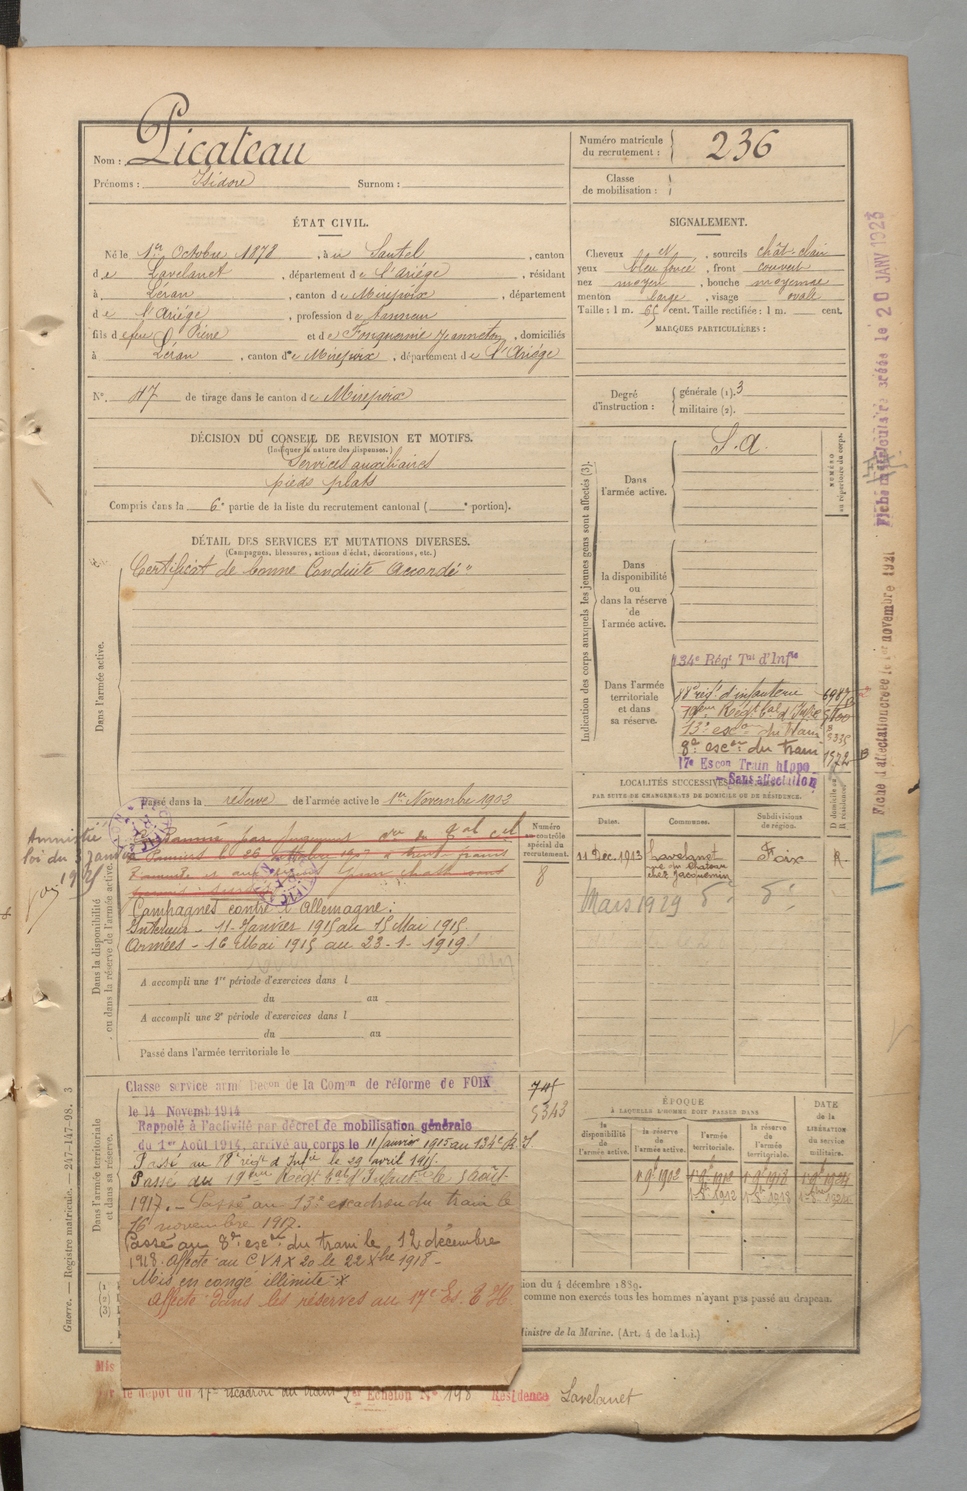 Nom : Picateau
Prénoms : Isidore Surnom :
Numéro matricule du recrutement : 236
Classe de mobilisation :
ÉTAT CIVIL.
Né le 1er Octobre 1878, à u Sautel, canton
d e Lavelanet, département d e l'Ariège, résidant
à Léran, canton d e Mirepoix, département
d e l'Ariège, profession d e tanneur
fils d e feu Pierre et d e Jeanneton, domiciliés
à Léran, canton d e Mirepoix, département d e l'Ariège
N° 47 de tirage dans le canton d e Mirepoix
SIGNALEMENT.
Cheveux N, sourcils chât. clair
yeux bleu foncé, front couvert
nez moyen, bouche moyenne
menton large, visage ovale
Taille : 1 m. 65 cent. Taille rectifiée : 1 m. cent.
MARQUES PARTICULIÈRES :
Degré d'instruction : générale (1). 3
militaire (2).
DÉCISION DU CONSEIL DE REVISION ET MOTIFS.
(Indiquer la nature des dispenses.)
Services auxiliaires
pieds plats
Compris dans la 6e partie de la liste du recrutement cantonal ( e portion).
DÉTAIL DES SERVICES ET MUTATIONS DIVERSES.
(Campagnes, blessures, actions d'éclat, décorations, etc.)
Dans l'armée active.
Certificat de bonne Conduite Accordé"
Indication des corps auxquels les jeunes gens sont affectés (3).
NUMÉRO au répertoire du corps.
Dans l'armée active.
S. A.
Dans la disponibilité ou dans la réserve de l'armée active.
Dans l'armée territoriale et dans sa réserve.
134e Régt Tal d'Infie
18e régt d'infanterie
13e escon du train
8e escon du train 1572
17e Escon Train hippo
Sans affectation
LOCALITÉS SUCCESSIVES
PAR SUITE DE CHANGEMENTS DE DOMICILE OU DE RÉSIDENCE.
Dates. Communes. Subdivisions de région. D domicile ou R résidence.
11 Dec. 1913 Lavelanet chez Jacquemin Foix R
Mars 1929 do do
Dans la disponibilité ou dans la réserve de l'armée active.
Passé dans la réserve de l'armée active le 1er Novembre 1903
Numéro au contrôle spécial du recrutement.
8
Amnistié
loi du 3 janvier
1925
Campagnes contre l'Allemagne :
Intérieur - 11 Janvier 1915 au 15 Mai 1915.
Armées - 16 Mai 1915 au 23-1-1919
A accompli une 1re période d'exercices dans l
du au
A accompli une 2e période d'exercices dans l
du au
Passé dans l'armée territoriale le
Dans l'armée territoriale et dans sa réserve.
Classe service armé Décon de la Comon de réforme de FOIX
le 14 Novemb 1914
Rappelé à l'activité par décret de mobilisation générale
du 1er Août 1914, arrivé au corps le 11 Janvier 1915 au 134e R I
Passé au 18e régt d'Infie le 29 avril 1915.
Passé au 19eme Régt d'Infanterie le 5 août
1917. - Passé au 13e escadron du train le
16 novembre 1917.
Passé au 8e escon du train le 12 décembre
1918. Affecté au C V A X 20 le 22 Xbre 1918 -
Mis en congé illimité
Affecté dans les réserves au 17e Es. T H
745
5343
ÉPOQUE
À LAQUELLE L'HOMME DOIT PASSER DANS
la disponibilité de l'armée active. la réserve de l'armée active. l'armée territoriale. la réserve de l'armée territoriale. DATE de la LIBÉRATION du service militaire.
ion du 4 décembre 1889.
comme non exercés tous les hommes n'ayant pas passé au drapeau.
Ministre de la Marine. (Art. 4 de la loi.)
Mis
le dépôt du 17e escadron du train Echelon N° 198 Résidence Lavelanet
Guerre. — Registre matricule. — 247-147-98. 3
Fiche d'affectation créée le 1er novembre 1921
Fiche matriculaire créée le 20 JANV 1923
E